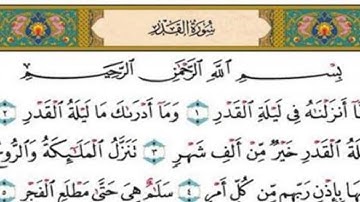 سُورَةُ القَدۡرِ
بِسۡمِ ٱللَّهِ ٱلرَّحۡمَٰنِ ٱلرَّحِيمِ
أَنزَلۡنَٰهُ فِي لَيۡلَةِ ٱلۡقَدۡرِ ١ وَمَآ أَدۡرَىٰكَ مَا لَيۡلَةُ ٱلۡقَدۡرِ ٢
ٱلۡقَدۡرِ خَيۡرٞ مِّنۡ أَلۡفِ شَهۡرٖ ٣ تَنَزَّلُ ٱلۡمَلَٰٓئِكَةُ وَٱلرُّو
بِإِذۡنِ رَبِّهِم مِّن كُلِّ أَمۡرٖ ٤ سَلَٰمٌ هِيَ حَتَّىٰ مَطۡلَعِ ٱلۡفَجۡرِ